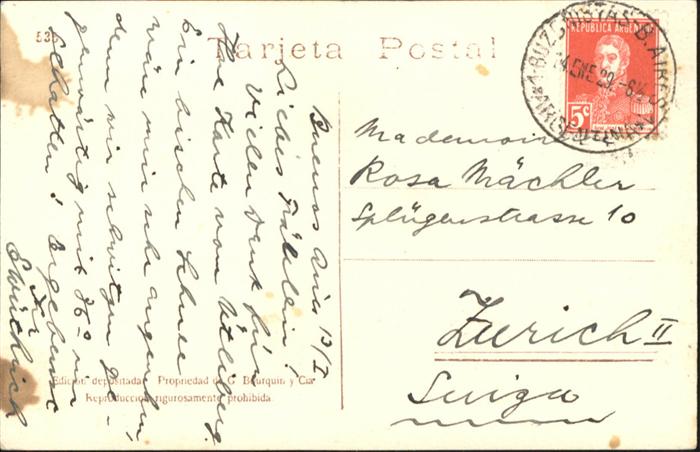 53
Tarjeta Postal
BUZONISTAS B. AIRES
14 ENE 29
REPUBLICA ARGENTINA
5c
Buenos Aires 13/I
Liebes Fräulein!
Vielen Dank für
Ihre Karte vom Utliberg.
Ein bischen Schnee
wäre mir sehr angenehm
denn wir schwitzen ge-
genwärtig mit 36° im
Schatten! Ergebenst
Ihr
Mademoiselle
Rosa Mächler
Splügenstrasse 10
Zürich II
Suiza
Edición depositada Propiedad de G. Bourquin y Cia
Reproducción rigurosamente prohibida